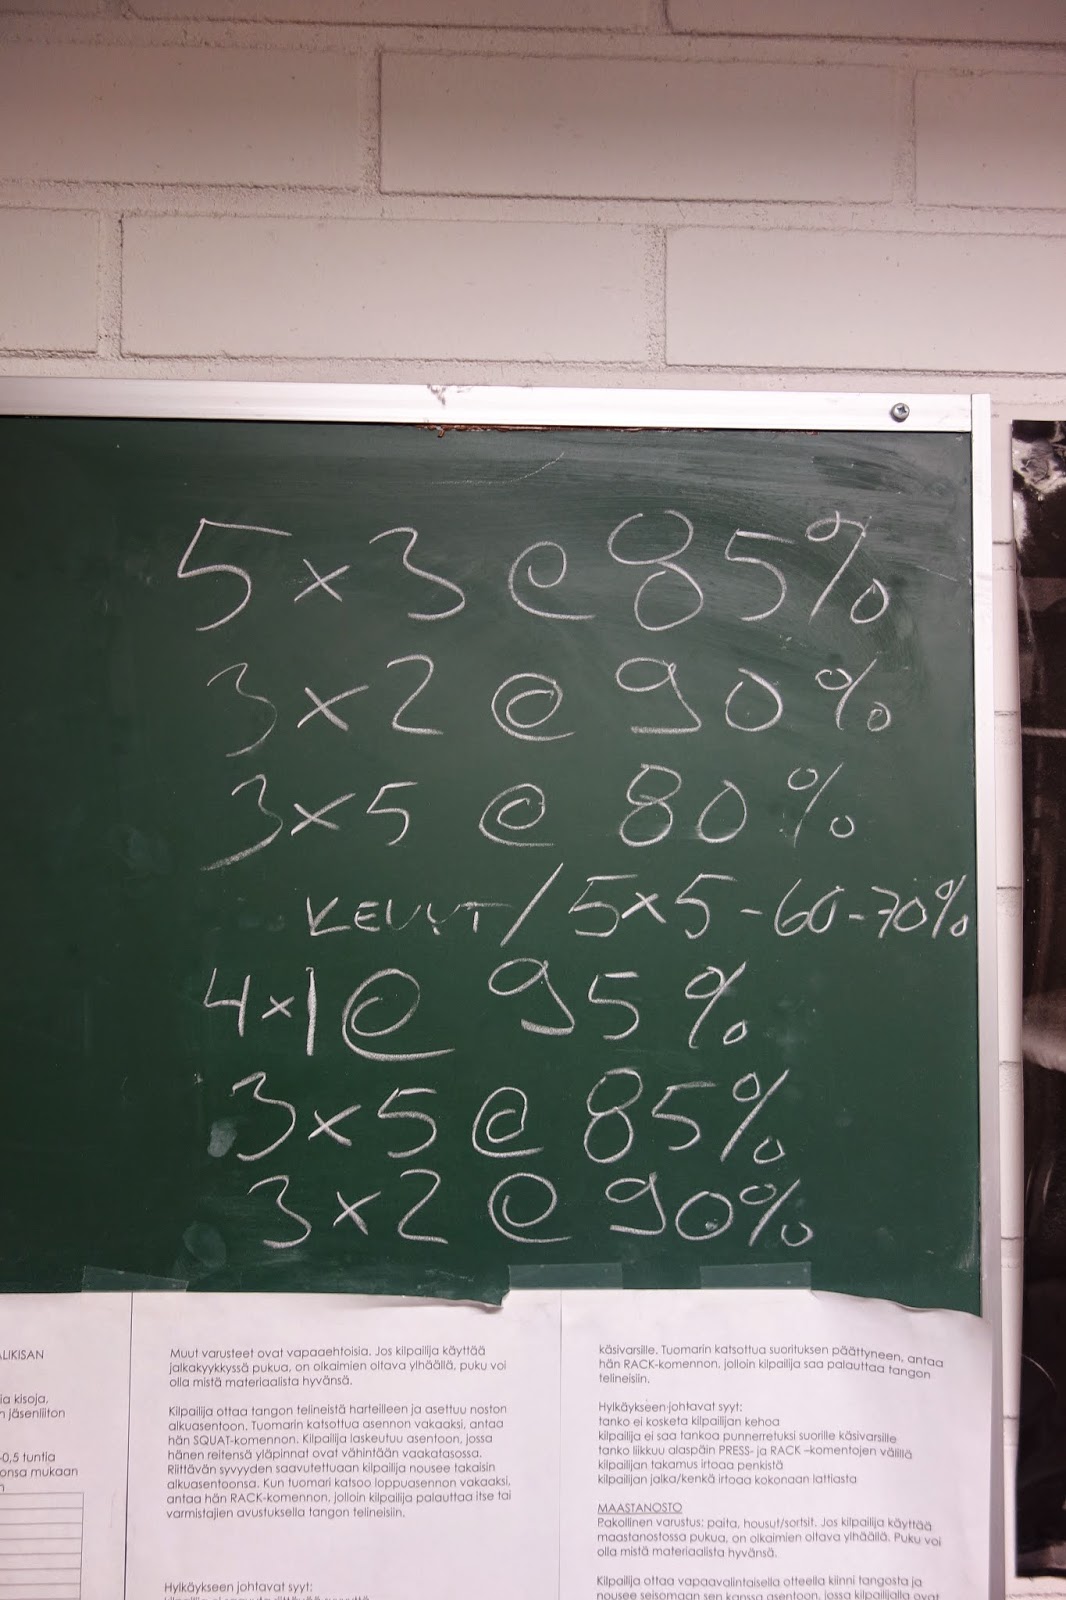 5×3@85%
3×2@90%
3×5@80%
KEVYT/5×5-60-70%
4×1@95%
3×5@85%
3×2@90%
ia kisoja,
jäsenliiton
0,5 tuntia
mukaan
Muut varusteet ovat vapaaehtoisia. Jos kilpailija käyttää
jalkakyykkyssä pukua, on olkaimien oltava ylhäällä, puku voi
olla mistä materiaalista hyvänsä.
Kilpailija ottaa tangon telineistä harteilleen ja asettuu noston
alkuasentoon. Tuomarin katsottua asennon vakaaksi, antaa
hän SQUAT-komennon. Kilpailija laskeutuu asentoon, jossa
hänen reitensä yläpinnat ovat vähintään vaakatasossa.
Riittävän syvyyden saavutettuaan kilpailija nousee takaisin
alkuasentoonsa. Kun tuomari katsoo loppuasennon vakaaksi,
antaa hän RACK-komennon, jolloin kilpailija palauttaa itse tai
varmistajien avustuksella tangon telineisiin.
Hylkäykseen johtavat syyt:
käsivarsille. Tuomarin katsottua suorituksen päättyneen, antaa
hän RACK-komennon, jolloin kilpailija saa palauttaa tangon
telineisiin.
Hylkäykseen johtavat syyt:
tanko ei kosketa kilpailijan kehoa
kilpailija ei saa tankoa punnerretuksi suorille käsivarsille
tanko liikkuu alaspäin PRESS- ja RACK –komentojen välillä
kilpailijan takamus irtoaa penkistä
kilpailijan jalka/kenkä irtoaa kokonaan lattiasta
MAASTANOSTO
Pakollinen varustus: paita, housut/sortsit. Jos kilpailija käyttää
maastanostossa pukua, on olkaimien oltava ylhäällä. Puku voi
olla mistä materiaalista hyvänsä.
Kilpailija ottaa vapaavalintaisella otteella kiinni tangosta ja
nousee seisomaan sen kanssa asentoon, jossa kilpailijalla ovat